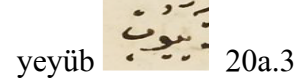 yeyüb ییوب 20a.3